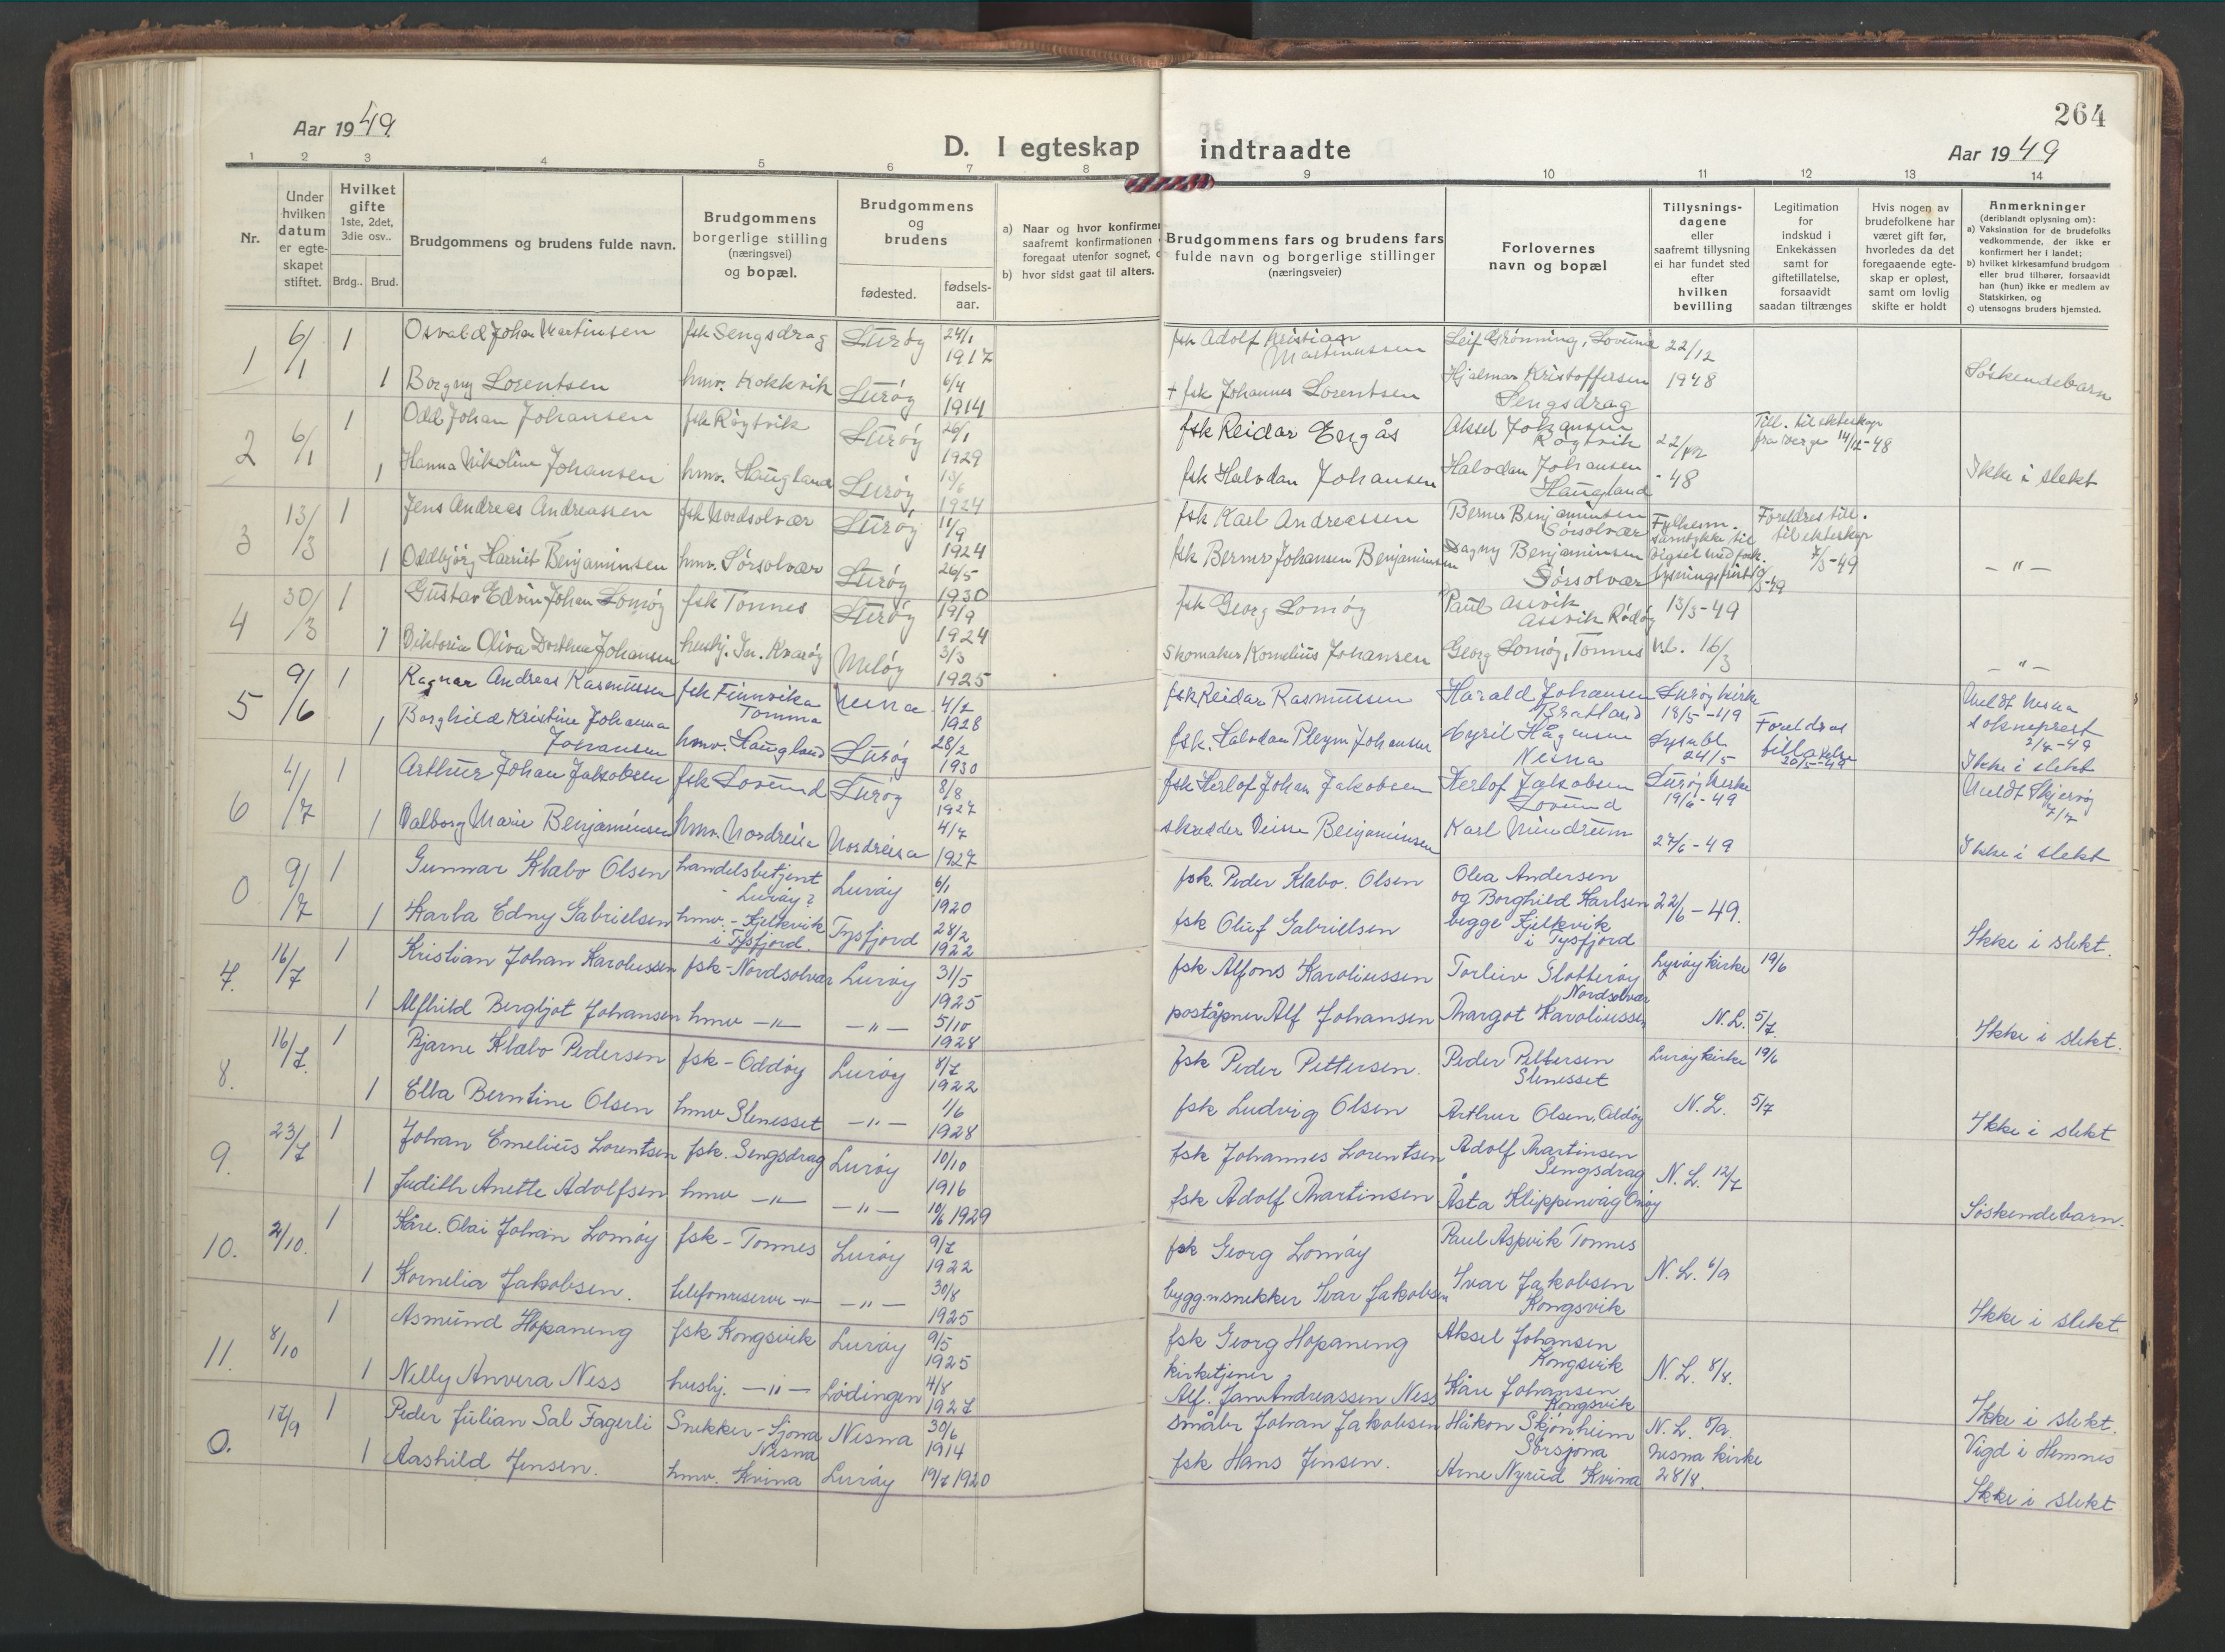 264
Aar 1949.
Aar 1949
D. I egteskap indtraadte
1 2 3 4 5 6 7 8 9 10 11 12 13 14
Nr.
Under hvilken datum er egteskapet stiftet.
Hvilket gifte 1ste, 2det, 3die osv..
Brdg.. Brud.
Brudgommens og brudens fulde navn.
Brudgommens borgerlige stilling (næringsvei) og bopæl.
Brudgommens og brudens
fødested. fødsels-aar.
a) Naar og hvor konfirmer
saafremt konfirmationen
foregaat utenfor sognet,
b) hvor sidst gaat til alters.
Brudgommens fars og brudens fars
fulde navn og borgerlige stillinger
(næringsveier)
Forlovernes
navn og bopæl
Tillysnings-
dagene
eller
saafremt tillysning
ei har fundet sted
efter
hvilken
bevilling
Legitimation
for
indskud i
Enkekassen
samt for
giftetillatelse,
forsaavidt
saadan tiltrænges
Hvis nogen av
brudefolkene har
været gift før,
hvorledes da det
foregaaende egte-
skap er opløst,
samt om lovlig
skifte er holdt
Anmerkninger
(deriblandt oplysning om):
a) Vaksination for de brudefolks
vedkommende, der ikke er
konfirmert her i landet;
b) hvilket kirkesamfund brudgom
eller brud tilhører, forsaavidt
han (hun) ikke er medlem av
Statskirken, og
c) utensogns bruders hjemsted.
1 6/1 1 Osvald Johan Martinsen fsk Sengsdrag Lurøy 24/1 1917 fsk Adolf Kristian Martinussen Leif Grønning, Lovund 22/12
1 Borgny Lorentsen hmv. Kokkvik Lurøy 6/4 1914 + fsk Johannes Lorentsen Hjalmar Kristoffersen Sengsdrag 1948 Søskendebarn
2 6/1 1 Odd Johan Johansen fsk Røytvik Lurøy 26/1 1929 fsk Reidar Engås Aksel Johansen Røytvik 22/12 Till. til ekteskap fra verge 14/12-48
1 Hanna Nikoline Johansen hmv. Haugland Lurøy 13/6 1924 fsk Halvdan Johansen Halvdan Johansen Haugland -48 Ikke i slekt
3 13/3 1 Jens Andreas Andreassen fsk Nordsolvær Lurøy 11/9 1924 fsk Karl Andreassen Berner Benjaminsen Sørsolvær Fylkesm. samtykke til Foreldres till. til ekteskap 7/3-49
1 Oddbjørg Harriet Benjaminsen hmv. Sørsolvær Lurøy 26/5 1930 fsk Berner Johansen Benjaminsen Dagny Benjaminsen Sørsolvær vigsel med fork. lysningsfrist - " -
4 30/3 1 Gustav Edvin Johan Lomøy fsk Tonnes Lurøy 19/9 1924 fsk Georg Lomøy Paul Asvik Asvik Rødøy 13/3-49
1 Viktoria Oliva Dorthea Johansen husbj. In. Kvarøy Meløy 3/3 1925 Skomaker Kornelius Johansen Georg Lomøy, Tonnes Nl. 16/3 - " -
5 9/6 1 Ragnar Andreas Rasmussen fsk Finnvika Tomma Nesna 4/2 1928 fsk Reidar Rasmussen Harald Johansen Bratland Lurøy kirke 18/5-49 Meldt Nesna sokneprest 2/7-49
1 Borghild Kristine Johanna Johansen hmv. Haugland Lurøy 28/2 1930 fsk. Halvdan Pleym Johansen Cyril Hågensen Nesna Lysebl. 24/5 Foreldres tillatelse 20/5-49 Ikke i slekt
6 4/7 1 Arthur Johan Jakobsen fsk Lovund Lurøy 8/8 1927 fsk Herlof Johan Jakobsen Herlof Jakobsen Lovund Lurøy kirke 19/6-49 Meldt Skjervøy 7/7
1 Valborg Marie Benjaminsen hmv. Nordreisa Nordreisa 4/7 1927 skredder Benjaminsen Karl Mundrum 27/6-49 Ikke i slekt
0 9/7 1 Gunnar Klabo Olsen handelsbetjent - Lurøy? Lurøy 6/1 1920 fsk. Peder Klabo. Olsen Olea Andersen
1 Karla Edny Gabrielsen hmv. - Kjelkvik i Tysfjord. Tysfjord 28/2 1922 fsk Oluf Gabrielsen og Borghild Karlsen begge Kjelkvik i Tysfjord 22/6-49. Ikke i slekt.
7. 16/7 1 Kristian Johan Karolussen fsk-Nordsolvær Lurøy 31/5 1925 fsk Alfons Karoliussen Torleiv Slotterøy Nordsolvær Lurøy kirke 19/6
1 Alfhild Bergljot Johansen hmv - " - - " - 5/10 1928 poståpner Alf Johansen Margot Karoliussen N.L. 5/7. Ikke i slekt.
8. 16/7. 1 Bjarne Klabo Pedersen fsk - Oddøy Lurøy 8/7 1922 fsk Peder Pettersen. Peder Pettersen Stenesset Lurøy kirke 19/6
1 Ella Berntine Olsen hmv Stenesset - " - 1/6 1928 fsk Ludvig Olsen Arthur Olsen, Oddøy N.L. 5/7 Ikke i slekt
9. 23/7 1 Johan Emelius Lorentsen fsk. Sengsdrag Lurøy 10/10 1916 fsk Johannes Lorentsen Adolf Martinsen Sengsdrag N.L. 12/7
1 Judith Anette Adolfsen hmv - " - - " - 10/6 1929 fsk Adolf Martinsen Åsta Klippenvåg Onøy Søskendebarn.
10. 2/10. 1 Kåre. Olai Johan Lomøy fsk - Tonnes Lurøy 9/7 1922 fsk Georg Lomøy Paul Aspvik Tonnes N.L. 6/9
1 Kornelia Jakobsen. telefonreserve - " - - " - 30/8 1925 byggn.snekker Ivar Jakobsen Ivar Jakobsen Kongsvik Ikke i slekt
11. 8/10 1 Asmund Hopaneng fsk Kongsvik Lurøy 9/5 1925 fsk Georg Hopaneng Aksel Johansen Kongsvik N.L. 8/8.
1 Nelly Anvera Ness husbj. - " - Lødingen 4/8 1927 kirketjener Alf. Jan Andreassen Ness Kåre Johansen Kongsvik Ikke i slekt.
0. 17/9 1 Peder Julian Sal Fagerli Snekker - Sjona Nesna Nesna 30/6 1914 småbr Johan Jakobsen Håkon Skjønheim Sørsjona N.L. 8/9. Vigd i Hemnes
1 Aashild Jensen. hmv. Kvina Lurøy 19/7 1920 fsk Hans Jensen. Arne Nyrud Kvina Nesna kirke 28/8. Ikke i slekt